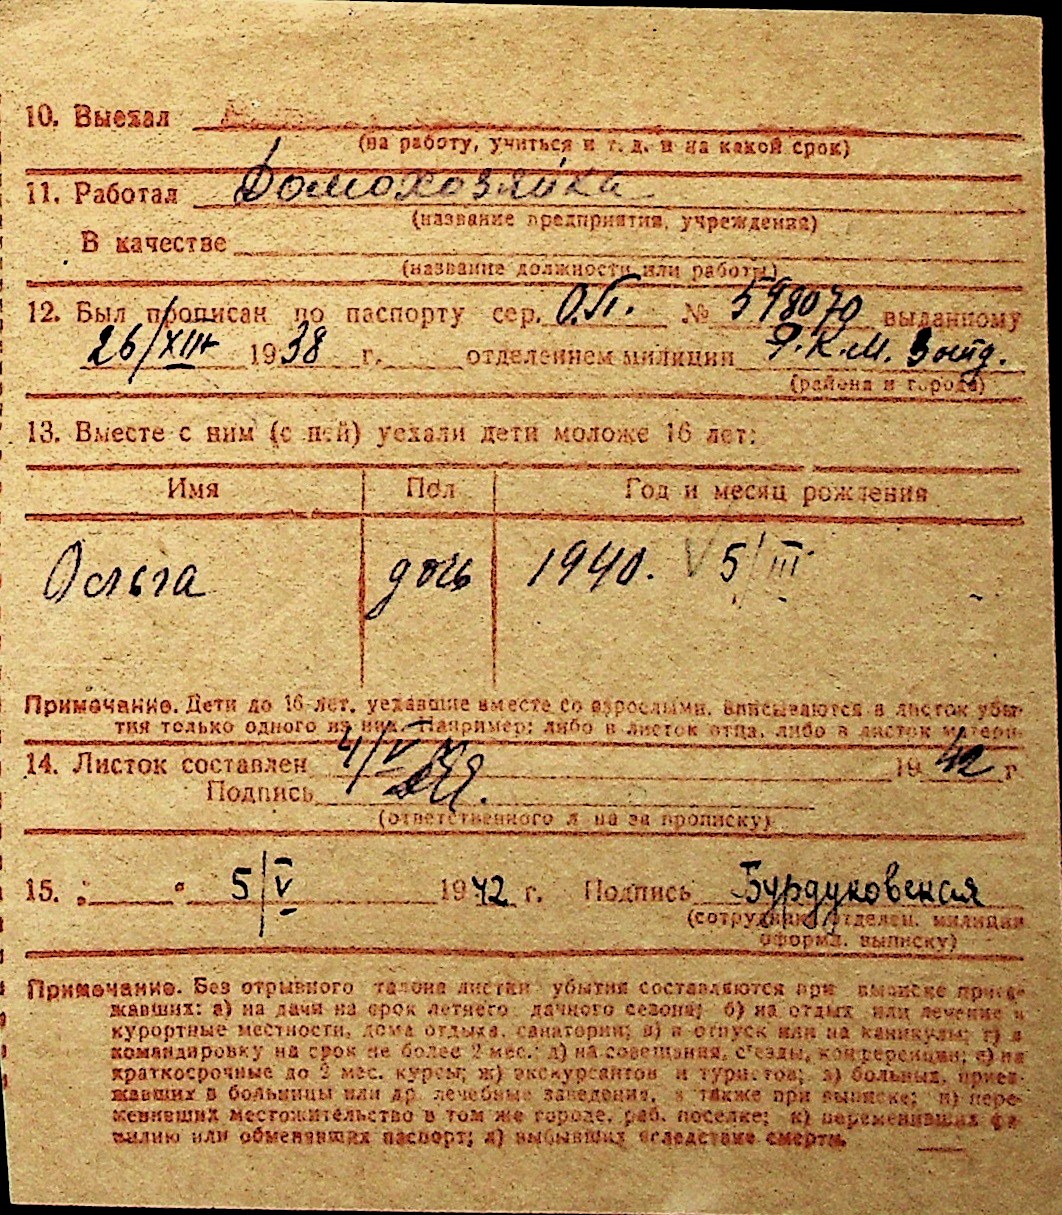 10. Выехал
(на работу, учиться и т. д. и на какой срок)
11. Работал Домохозяйка
(название предприятия, учреждения)
В качестве
(название должности или работы)
12. Был прописан по паспорту сер. О.П. № 598070 выданному
26/XII 1938 г. отделением милиции Р.К.М. 3 отд.
(района и города)
13. Вместе с ним (с ней) уехали дети моложе 16 лет:
Имя Пол Год и месяц рождения
Ольга дочь 1940. V 5/III
Примечание. Дети до 16 лет, уехавшие вместе со взрослыми, вписываются в листок убы-
тия только одного из них. Например: либо в листок отца, либо в листок матери.
14. Листок составлен 4/V 1942 г.
Подпись
(ответственного л на за прописку)
15. " " 5/V 1942 г. Подпись Бурдуковская
(сотрудника отделен. милиции
оформл. выписку)
Примечание. Без отрывного талона листки убытия составляются при выписке приез-
жавших: а) на дачи на срок летнего дачного сезона; б) на отдых или лечение в
курортные местности, дома отдыха, санатории; в) в отпуск или на каникулы; г) в
командировку на срок не более 2 мес.; д) на совещания, съезды, конференции; е) на
краткосрочные до 2 мес. курсы; ж) экскурсантов и туристов; з) больных, приез-
жавших в больницы или др. лечебные заведения, а также при выписке; и) пере-
менивших местожительство в том же городе, раб. поселке; к) переменивших фа-
милию или обменявших паспорт; л) выбывших вследствие смерти.